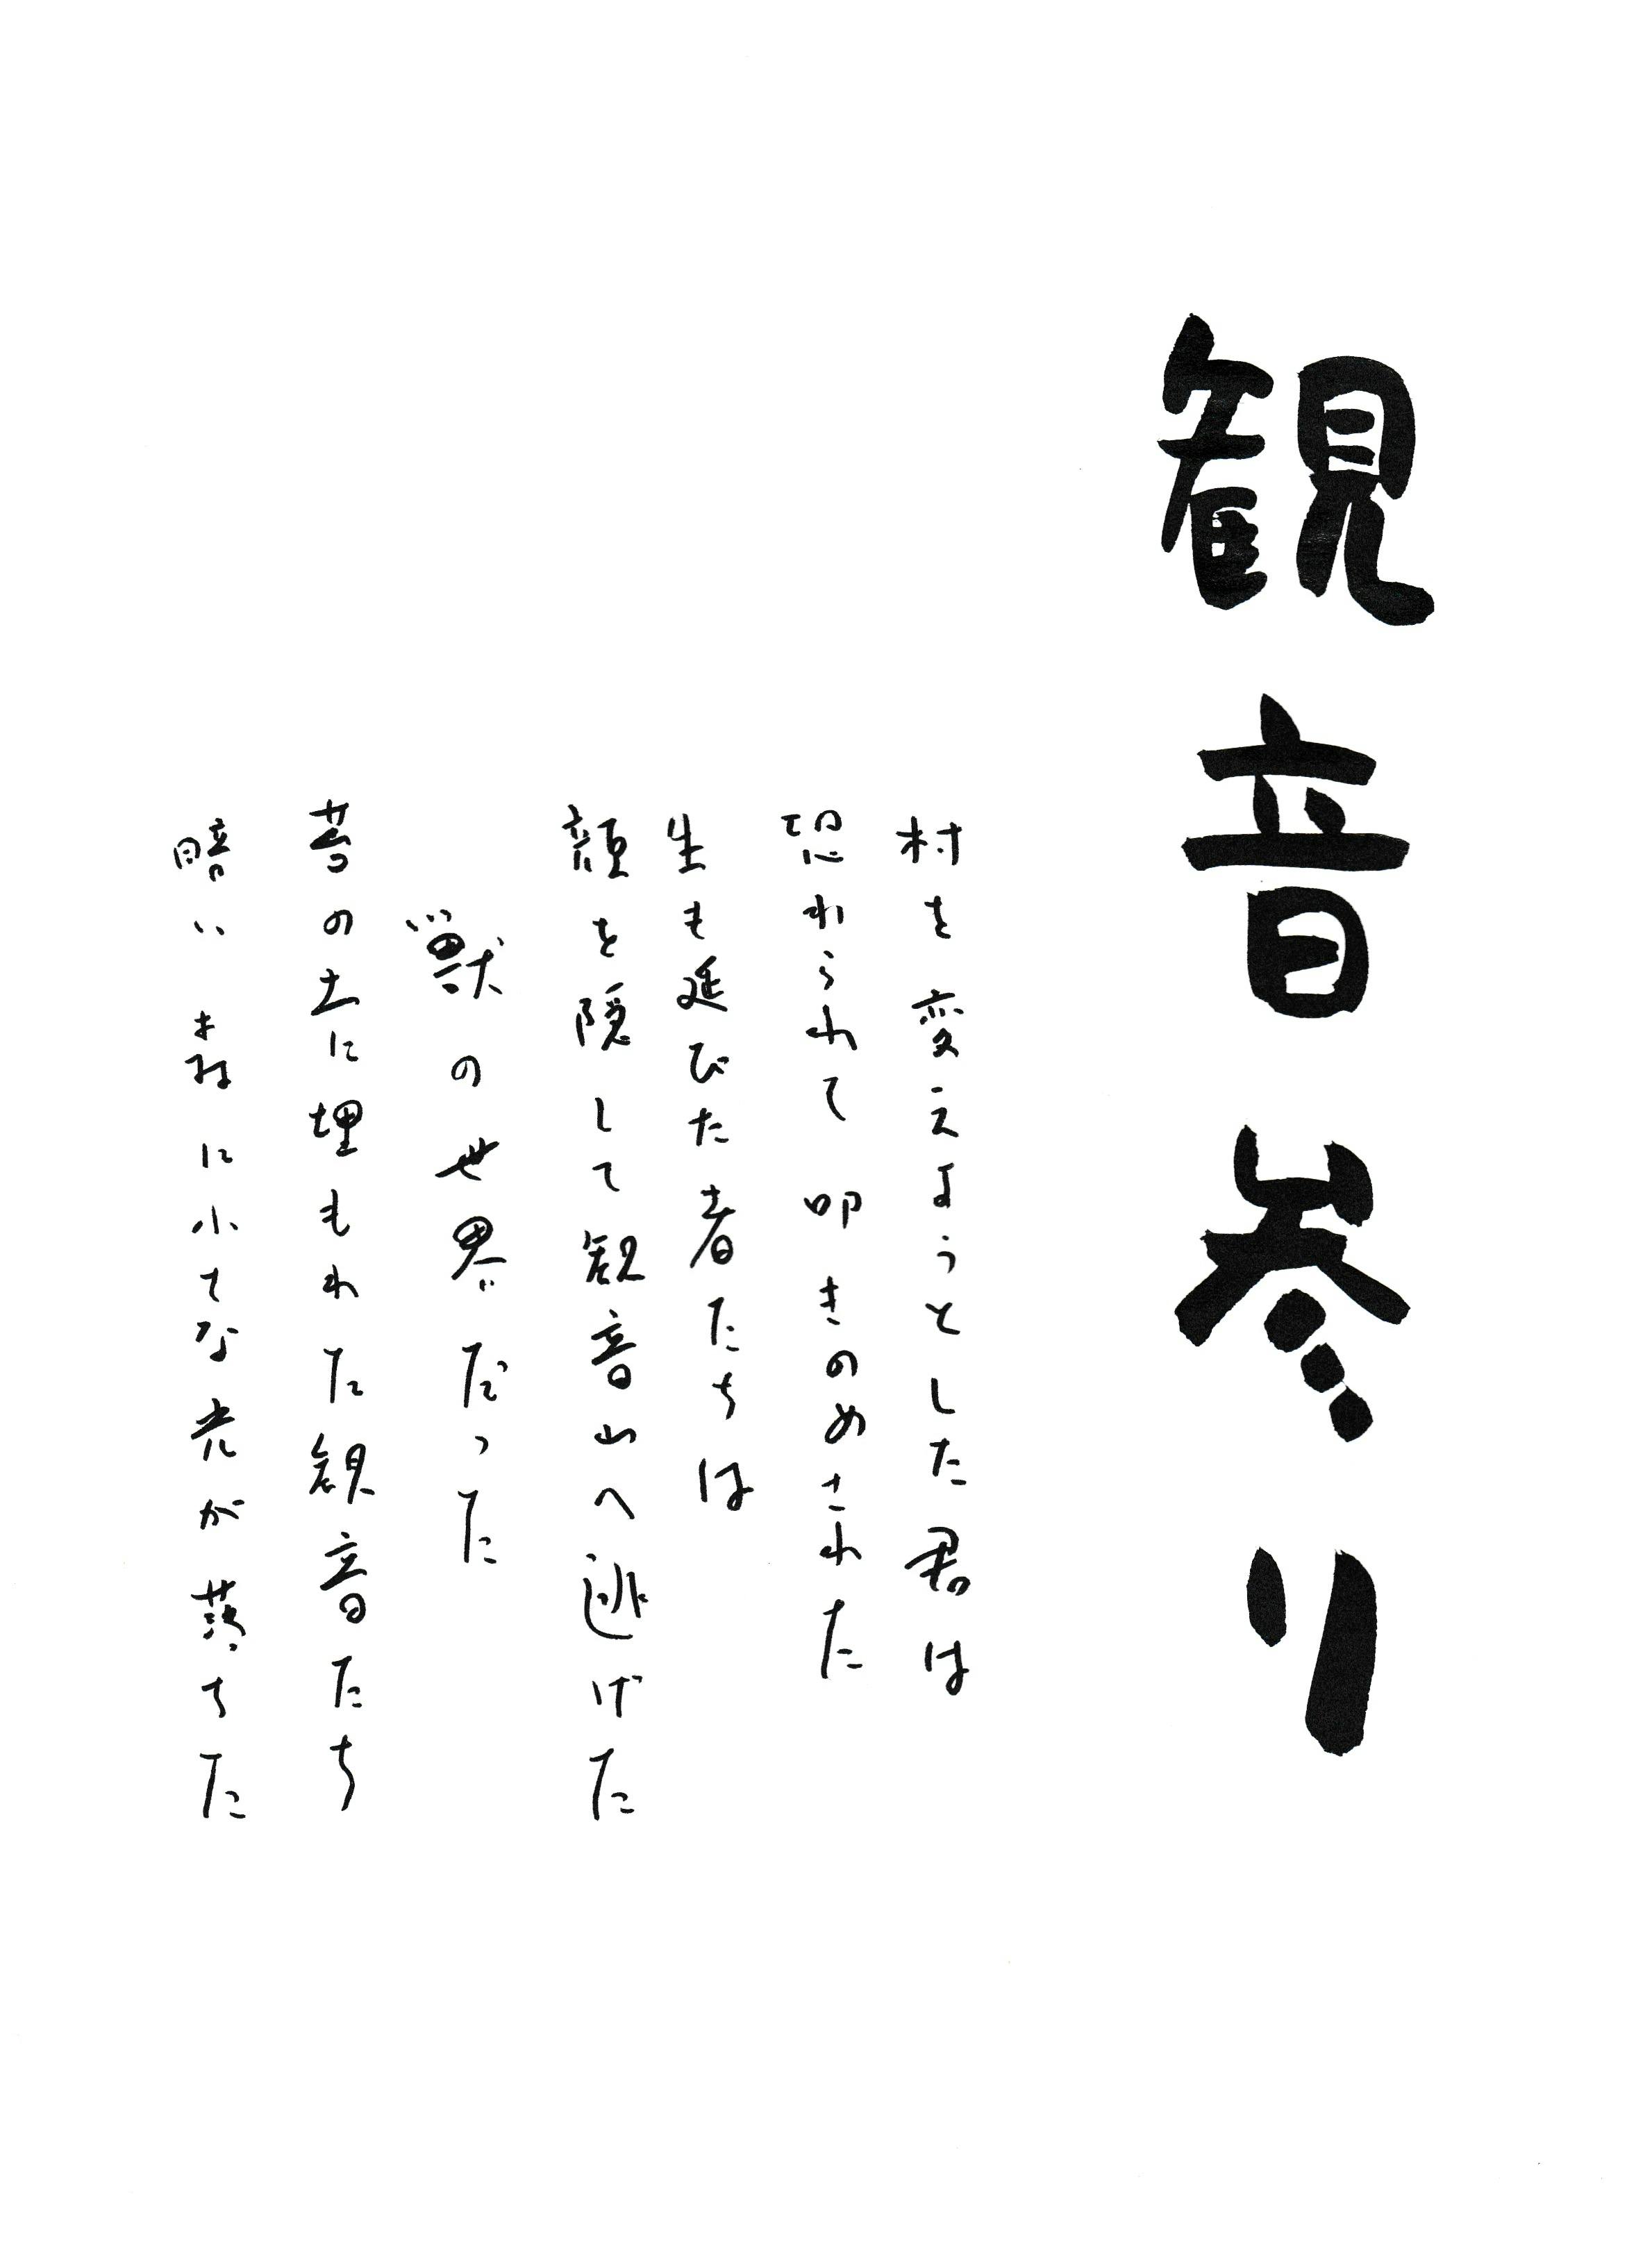 観音参り
村を変えようとした君は
恐れられて叩きのめされた
生も延びた者たちは
顔を隠して観音山へ逃げた
獣の世界だった
昔の土に埋もれた観音たち
暗い森に小さな光が落ちた